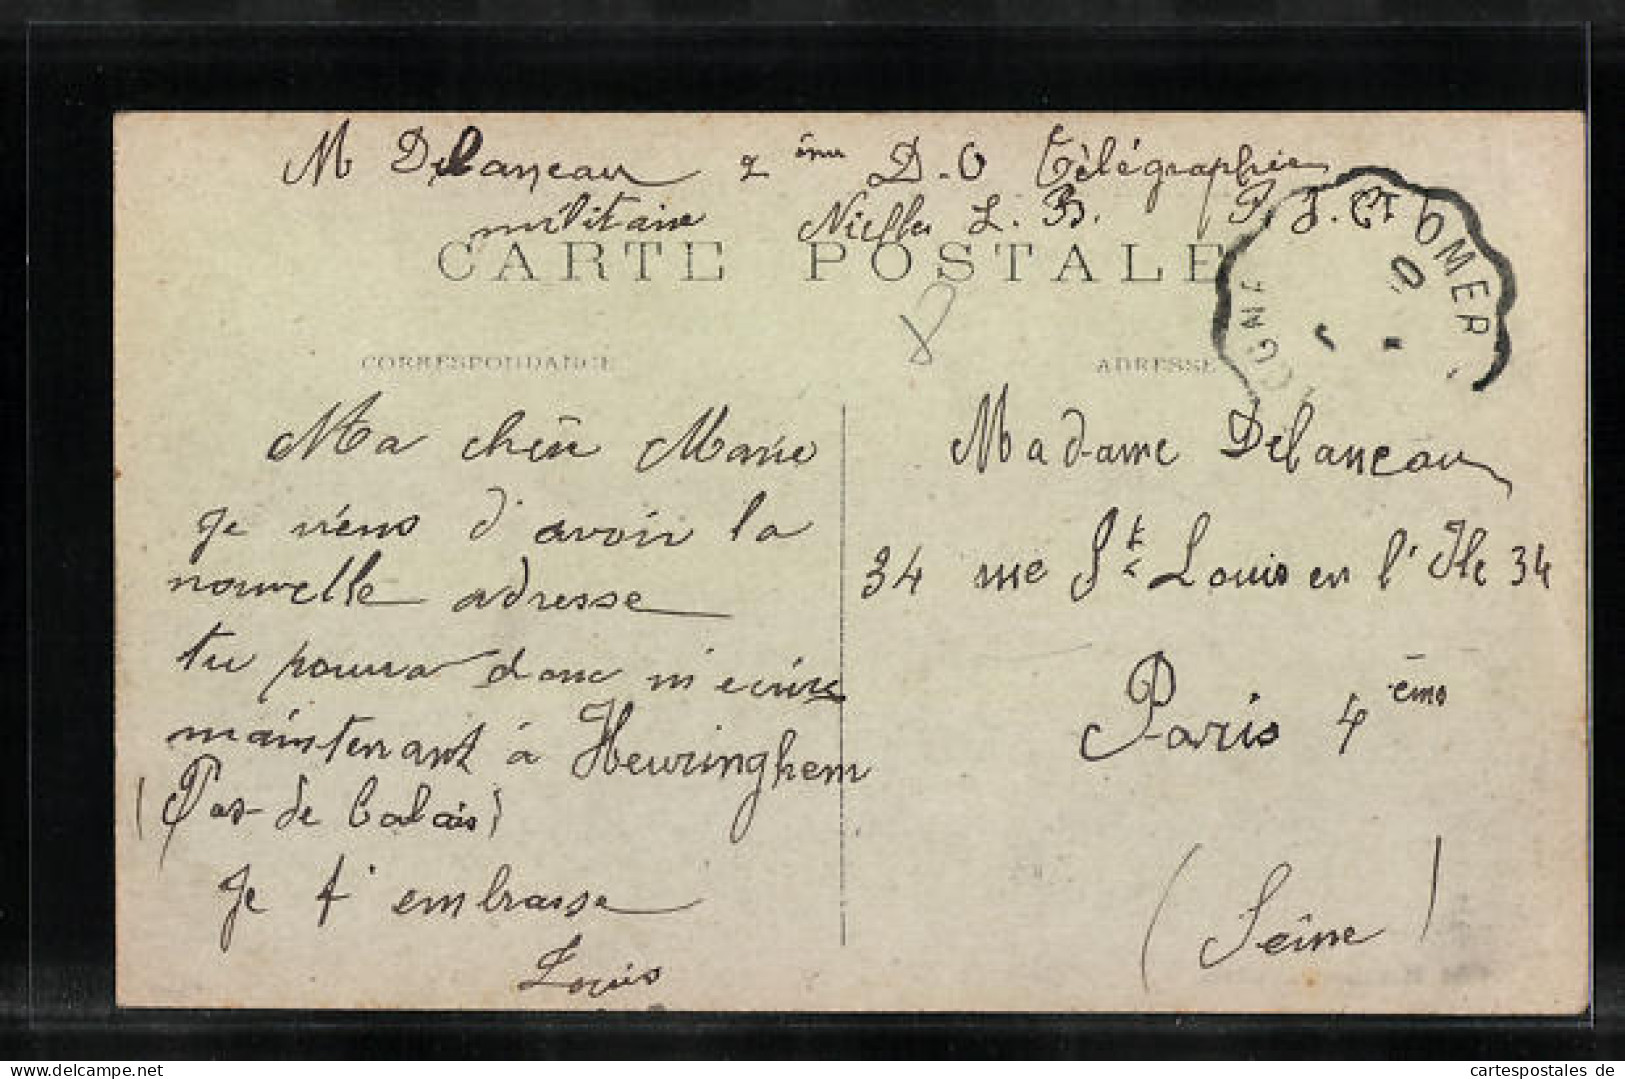 M Delanneau 2ème D.O Télégraphie
militaire Nielles L. B. P. d. C.
CARTE POSTALE
OMER
OGNE
CORRESPONDANCE
ADRESSE
Ma chère Marie
je viens d'avoir la
nouvelle adresse
tu pourra donc m'ecrire
maintenant à Heuringhem
(Pas-de Calais)
Je t'embrasse
Louis
Madame Delanneau
34 rue St Louis en l'Ile 34
Paris 4ème
(Seine)
www.cartespostales.de